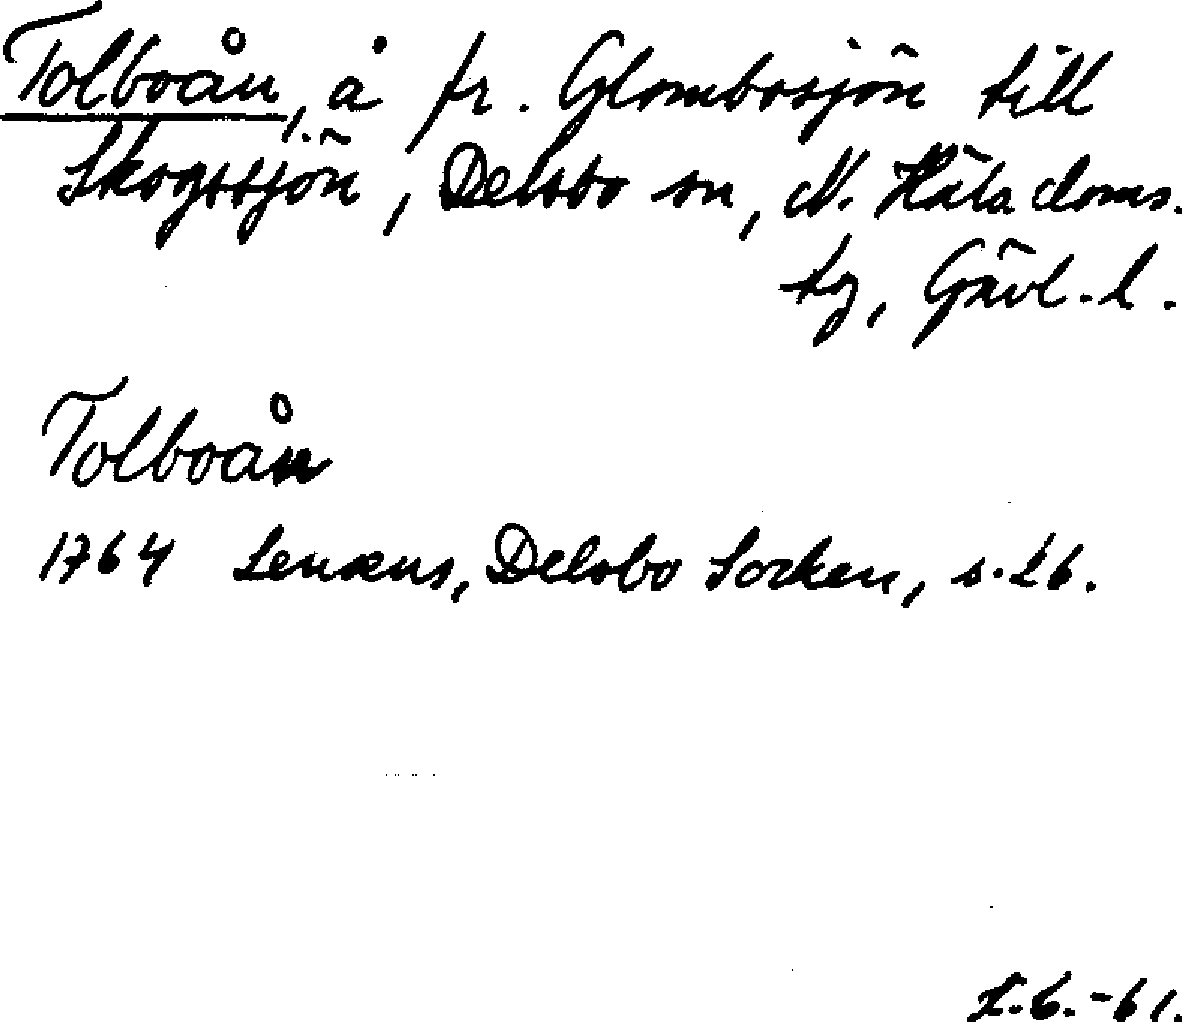 Tolboån, å fr. Glombosjön till
Skogssjön, Delsbo sn, N. Häls. doms.
tg, Gävl. l.
Tolboån
1764 Lenæus, Delsbo Socken, s. 26.
L.6.-61.